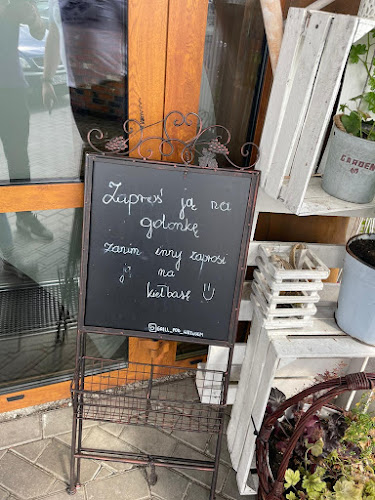 Zaproś ją na
golonkę
zanim inny zaprosi
ją na
kiełbasę
GRILL_POD_WIEWIOREM
GARDEN